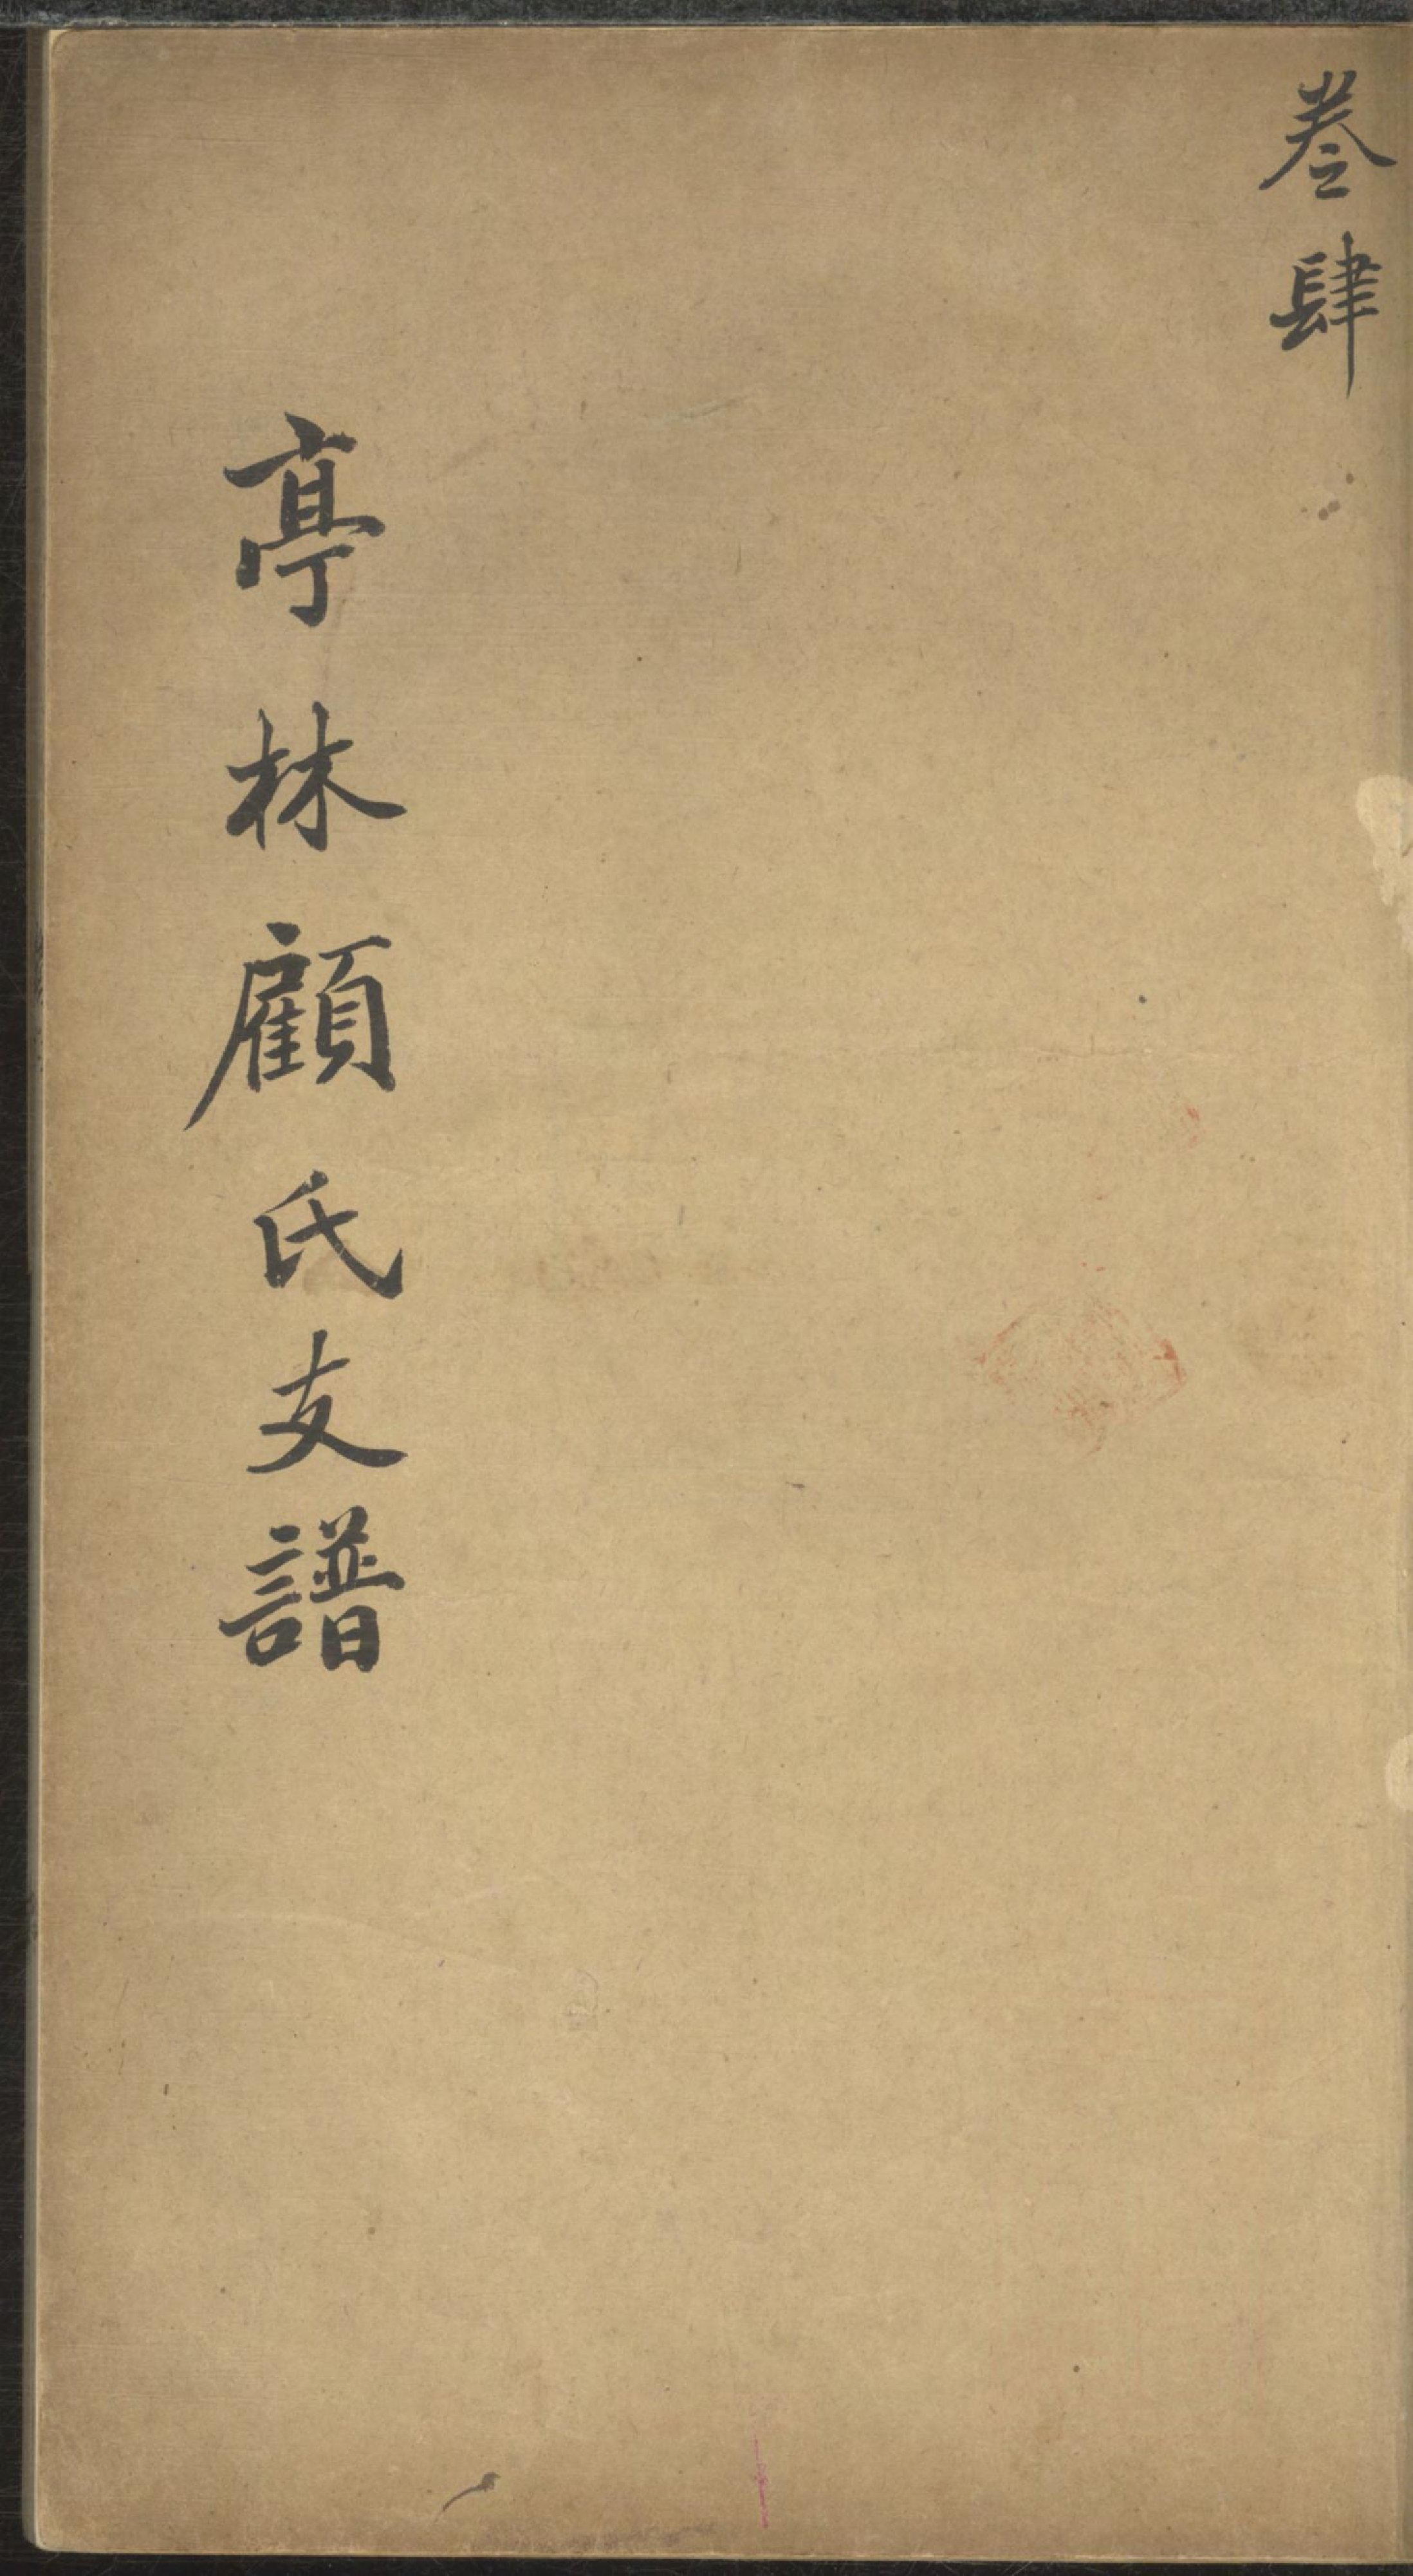 卷肆
亭林顧氏支譜